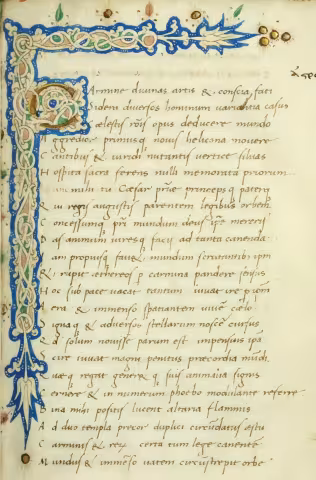 CArmine diuinas artis & conscia fati
Sidera diuersos hominum uariantia casus
Cælestis rõis opus deducere mundo
Aggredior primusq nouis helicona mouere
Cantibus & uiridi nutantis uertice siluas
Hospita sacra ferens nulli memorata priorum
tu Cæsar prīæ princepsq paterq
Qui regis augustis parentem legibus orbem
Concessumq pr̄i mundum deus ip̄e mereris
as animum uiresq facis ad tanta canenda
am propiusq fauet mundum scrutantibus ipm̄
Et cupit æthereos p carmina pandere sensus
Hoc sub pace uacat tantum
era & immenso spatiantem uiuere cælo
ignaq & aduersos stellarum noscē cursus
d solum nouisse parum est impensius ipa
cire iuuat magni penitus præcordia mūdi
uæq regat generetq suis animalia signis
ernere & in numerum phoebo modulante referre
ina mihi positis lucent altaria flammis
Ad duo templa precor duplici circūdatus æstu
Carminis & rerum certa cum lege canentē
Mundus & immēso uatem circūstrepit orbe